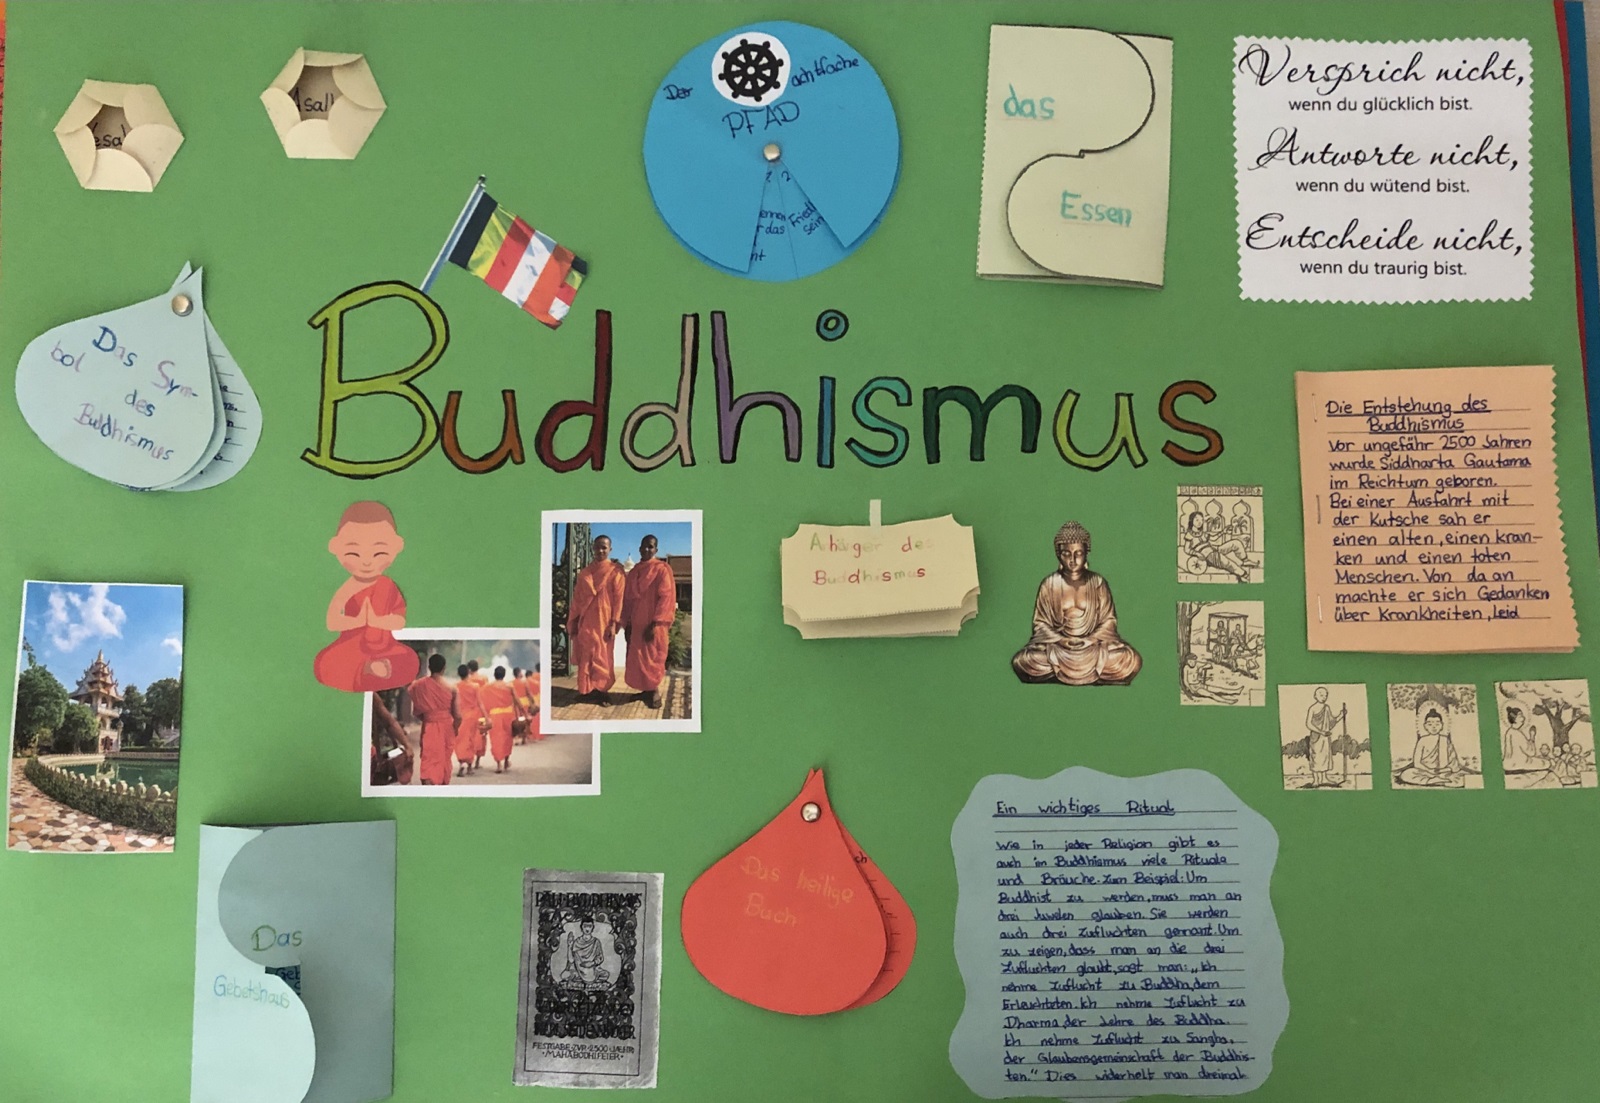 Der achtfache
PFAD
1 2
das
Essen
Versprich nicht,
wenn du glücklich bist.
Antworte nicht,
wenn du wütend bist.
Entscheide nicht,
wenn du traurig bist.
Das Sym-
bol
des
Buddhismus
Buddhismus
Die Entstehung des
Buddhismus
Vor ungefähr 2500 Jahren
wurde Siddharta Gautama
im Reichtum geboren.
Bei einer Ausfahrt mit
der Kutsche sah er
einen alten, einen kran-
ken und einen toten
Menschen. Von da an
machte er sich Gedanken
über Krankheiten, Leid
Anhänger des
Buddhismus
Das
Gebetshaus
PALI-BUDDHISMUS
FESTGABE ZUR 2500 JAHR
MAHABODHI FEIER
Das heilige
Buch
Ein wichtiges Ritual
Wie in jeder Religion gibt es
auch im Buddhismus viele Rituale
und Bräuche. Zum Beispiel: Um
Buddhist zu werden, muss man an
drei Juwelen glauben. Sie werden
auch drei Zufluchten genannt. Um
zu zeigen, dass man an die drei
Zufluchten glaubt, sagt man: „Ich
nehme Zuflucht zu Buddha, dem
Erleuchteten. Ich nehme Zuflucht zu
Dharma, der Lehre des Buddha.
Ich nehme Zuflucht zu Sangha,
der Glaubensgemeinschaft der Buddhis-
ten." Dies widerholt man dreimal